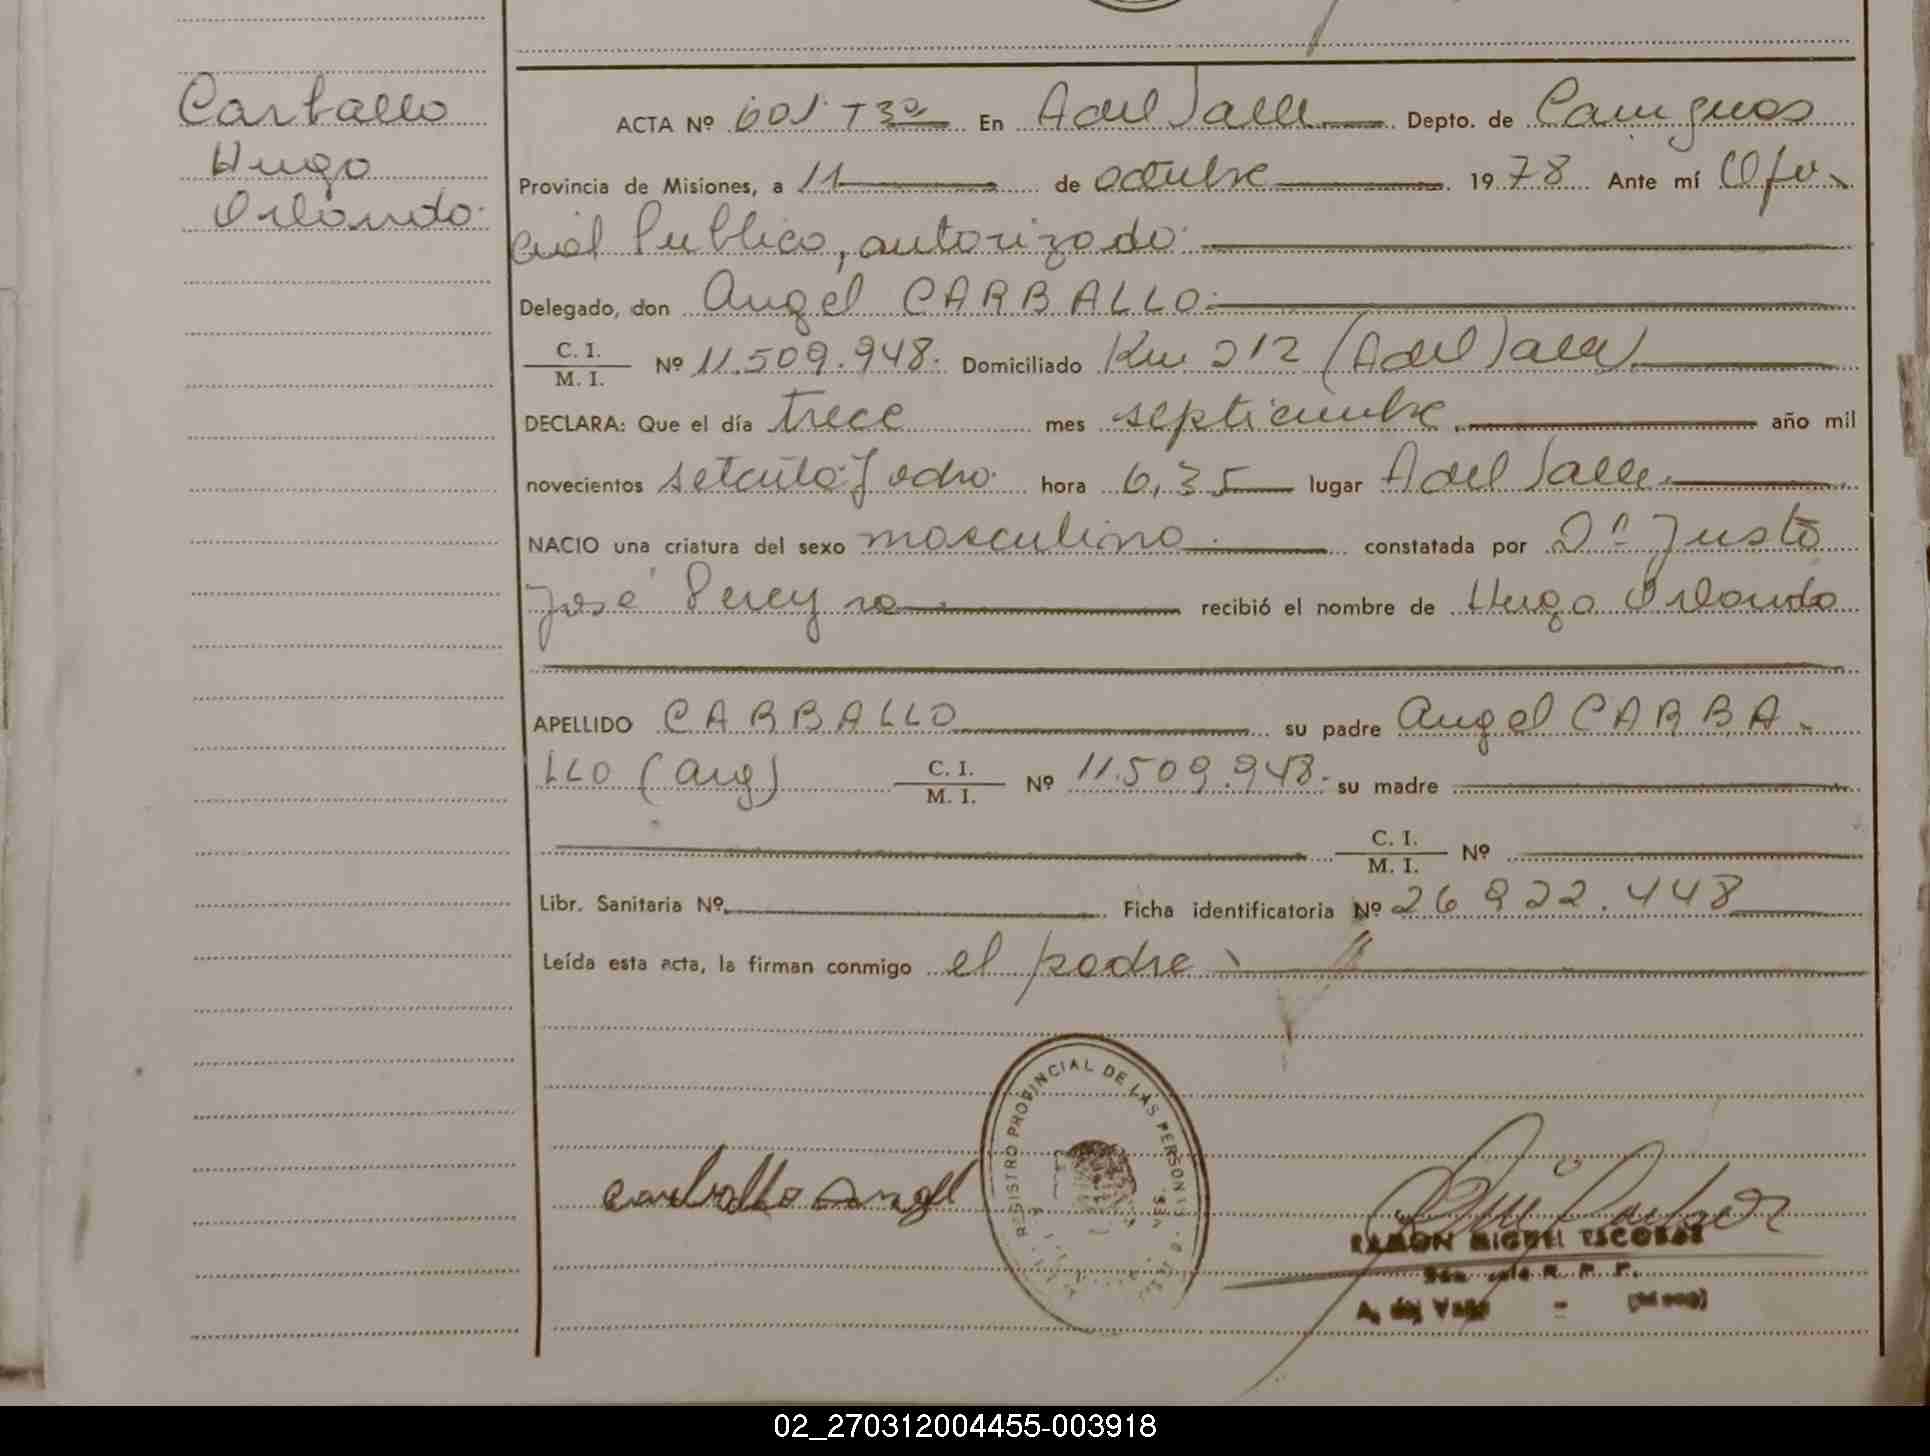 Carballo
Hugo
Orlando
ACTA Nº 601 T 3º En A del Valle Depto. de Cainguas
Provincia de Misiones, a 11 de octubre 1978 Ante mí Ofi-
cial Publico, autorizado
Delegado, don Angel CARBALLO
C. I.
M. I. Nº 11.509.948. Domiciliado Km 212 (A del Valle)
DECLARA: Que el día trece mes septiembre año mil
novecientos setenta y ocho hora 6,35 lugar A del Valle
NACIO una criatura del sexo masculino constatada por Dº Justo
José Pereyra recibió el nombre de Hugo Orlando
APELLIDO CARBALLO su padre Angel CARBA-
LLO (Arg) C. I.
M. I. Nº 11.509.948. su madre
C. I.
M. I. Nº
Libr. Sanitaria Nº Ficha identificatoria Nº 26.922.448
Leída esta acta, la firman conmigo el padre
REGISTRO PROVINCIAL DE LAS PERSONAS
Carballo Angel
RAMON MIGUEL ESCOBAR
R. P. P.
A. del Valle - (Mnes)
02_270312004455-003918